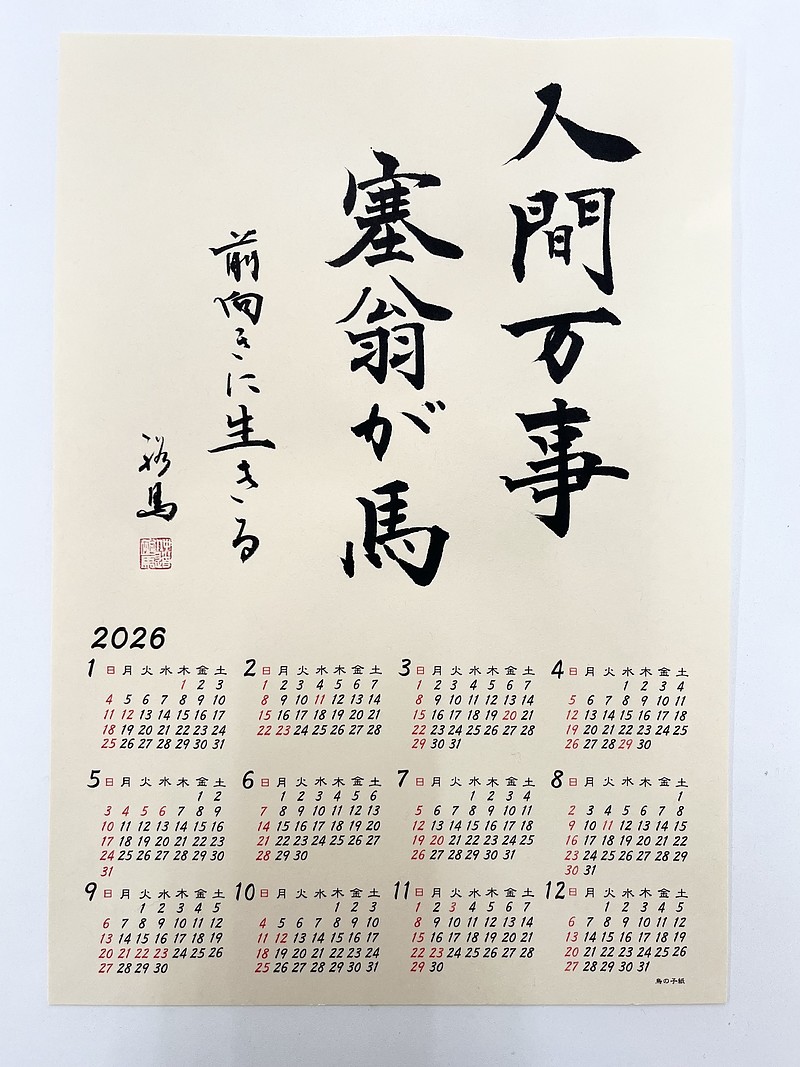 人間万事
塞翁が馬
前向きに生きる
裕馬
2026
1 日 月 火 水 木 金 土
1 2 3
4 5 6 7 8 9 10
11 12 13 14 15 16 17
18 19 20 21 22 23 24
25 26 27 28 29 30 31
2 日 月 火 水 木 金 土
1 2 3 4 5 6 7
8 9 10 11 12 13 14
15 16 17 18 19 20 21
22 23 24 25 26 27 28
3 日 月 火 水 木 金 土
1 2 3 4 5 6 7
8 9 10 11 12 13 14
15 16 17 18 19 20 21
22 23 24 25 26 27 28
29 30 31
4 日 月 火 水 木 金 土
1 2 3 4
5 6 7 8 9 10 11
12 13 14 15 16 17 18
19 20 21 22 23 24 25
26 27 28 29 30
5 日 月 火 水 木 金 土
1 2
3 4 5 6 7 8 9
10 11 12 13 14 15 16
17 18 19 20 21 22 23
24 25 26 27 28 29 30
31
6 日 月 火 水 木 金 土
1 2 3 4 5 6
7 8 9 10 11 12 13
14 15 16 17 18 19 20
21 22 23 24 25 26 27
28 29 30
7 日 月 火 水 木 金 土
1 2 3 4
5 6 7 8 9 10 11
12 13 14 15 16 17 18
19 20 21 22 23 24 25
26 27 28 29 30 31
8 日 月 火 水 木 金 土
1
2 3 4 5 6 7 8
9 10 11 12 13 14 15
16 17 18 19 20 21 22
23 24 25 26 27 28 29
30 31
9 日 月 火 水 木 金 土
1 2 3 4 5
6 7 8 9 10 11 12
13 14 15 16 17 18 19
20 21 22 23 24 25 26
27 28 29 30
10 日 月 火 水 木 金 土
1 2 3
4 5 6 7 8 9 10
11 12 13 14 15 16 17
18 19 20 21 22 23 24
25 26 27 28 29 30 31
11 日 月 火 水 木 金 土
1 2 3 4 5 6 7
8 9 10 11 12 13 14
15 16 17 18 19 20 21
22 23 24 25 26 27 28
29 30
12 日 月 火 水 木 金 土
1 2 3 4 5
6 7 8 9 10 11 12
13 14 15 16 17 18 19
20 21 22 23 24 25 26
27 28 29 30 31
鳥の子紙